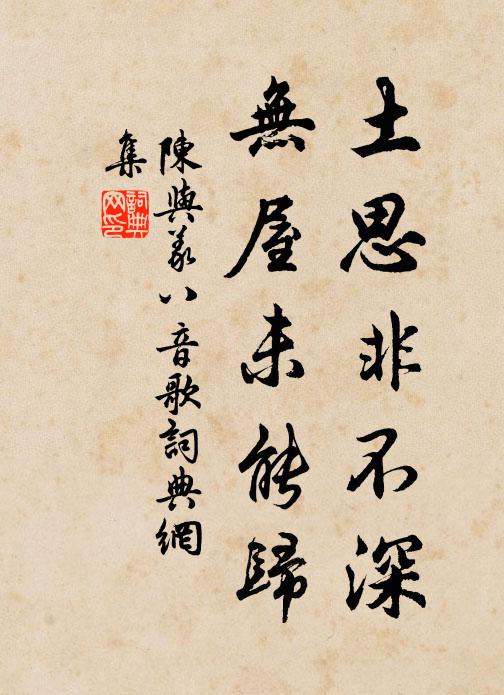 土思非不深
無屋未能歸
陳與義八音歌詞典網
集
詞典網印